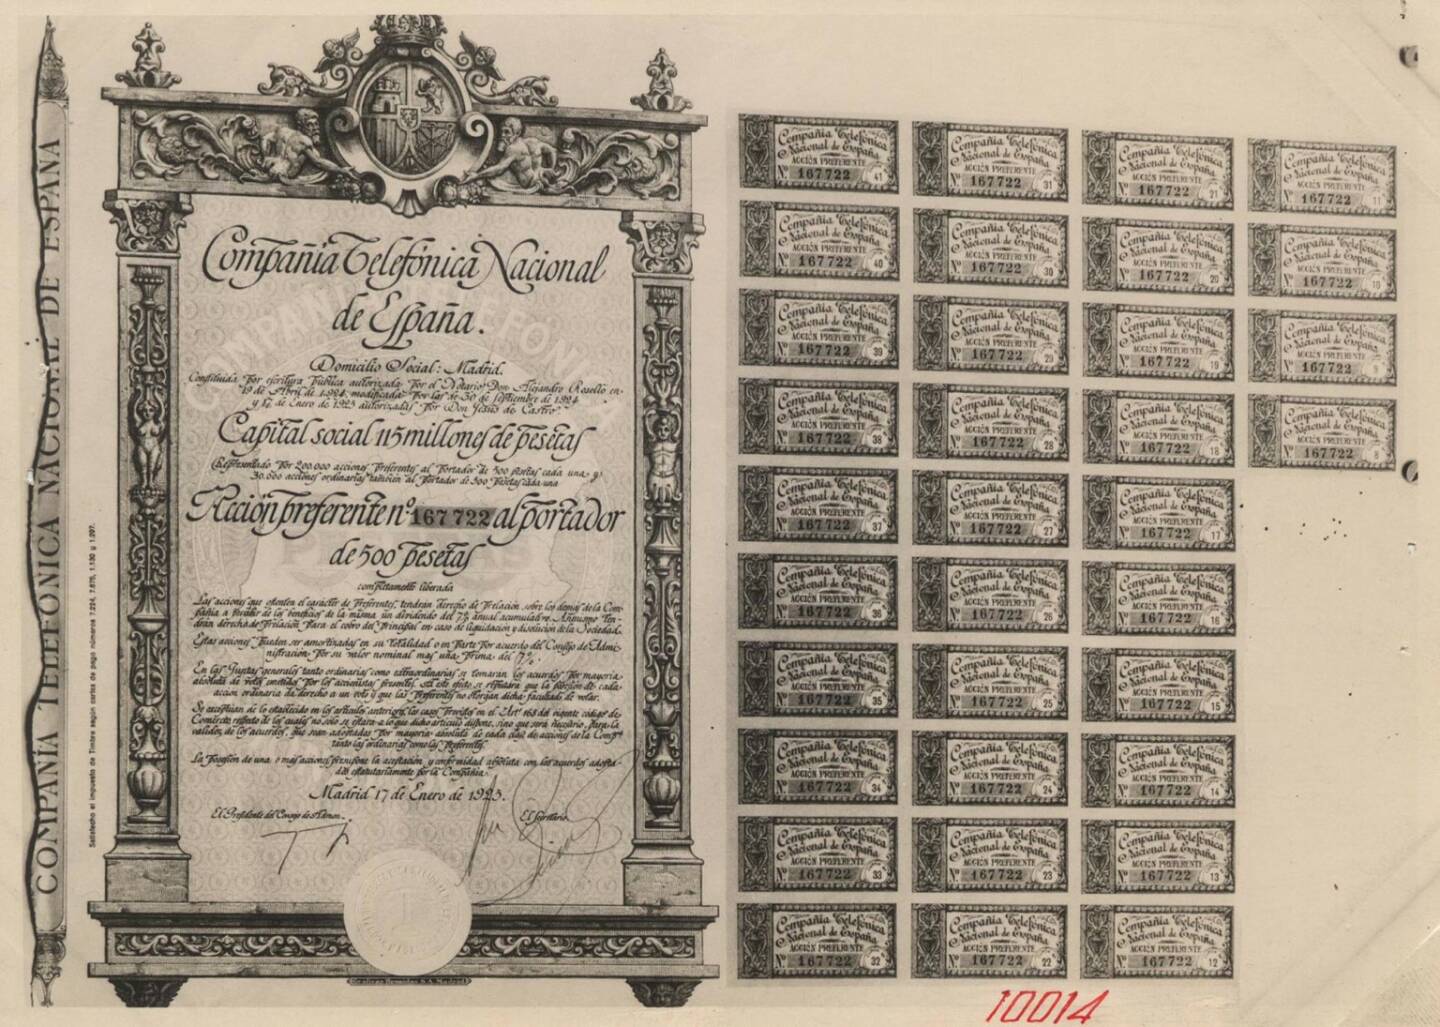 COMPAÑÍA TELEFÓNICA NACIONAL DE ESPAÑA
Satisfecho el impuesto de Timbre según cartas de pago números 7.224, 7.670, 1.130 y 1.097.
Compañia Telefónica Nacional
de España.
Domicilio Social: Madrid.
Constituida por escritura pública autorizada por el Notario Don Alejandro Roselló en
19 de Abril de 1.924, modificada por las de 30 de septiembre de 1924
y 17 de Enero de 1925 autorizadas por Don Jesús de Castro
Capital social 115 millones de pesetas
(Representado por 200.000 acciones preferentes al portador de 500 pesetas cada una y
30.000 acciones ordinarias también al portador de 500 pesetas cada una
Acción preferente nº 167722 al portador
de 500 pesetas
completamente liberada
Las acciones que ostenten el carácter de Preferentes, tendrán derecho de prelación sobre las demas de la Com-
pañía a percibir de los beneficios de la misma un dividendo del 7% anual acumulativo. Asimismo ten-
drán derecho de prelación para el cobro del principal en caso de liquidación y disolución de la Sociedad.
Estas acciones pueden ser amortizadas en su totalidad o en parte por acuerdo del Consejo de Admi-
nistración por su valor nominal mas una prima del 7%.
En las Juntas generales tanto ordinarias como extraordinarias se tomarán los acuerdos por mayoria
absoluta de votos emitidos por los accionistas presentes. A este efecto se reputará que la posesión de cada
acción ordinaria da derecho a un voto y que las preferentes no otorgan dicha facultad de votar.
Se exceptúan de lo establecido en los artículos anteriores los casos previstos en el Artº 168 del vigente código de
Comercio respecto de los cuales no solo se estará a lo que dicho artículo dispone, sino que será necesario, para la
validez de los acuerdos, que sean adoptados por mayoria absoluta de cada clase de acciones de la Compª
tanto las ordinarias como las preferentes.
La posesión de una o mas acciones presupone la aceptación y conformidad absoluta con los acuerdos adopta-
dos estatutariamente por la Compañía.
Madrid 17 de Enero de 1925.
El Presidente del Consejo de Admon.
El Secretario
Compañia Telefónica
Nacional de España
ACCIÓN PREFERENTE
Nº 167722 41
Compañia Telefónica
Nacional de España
ACCIÓN PREFERENTE
Nº 167722 40
Compañia Telefónica
Nacional de España
ACCIÓN PREFERENTE
Nº 167722 39
Compañia Telefónica
Nacional de España
ACCIÓN PREFERENTE
Nº 167722 38
Compañia Telefónica
Nacional de España
ACCIÓN PREFERENTE
Nº 167722 37
Compañia Telefónica
Nacional de España
ACCIÓN PREFERENTE
Nº 167722 36
Compañia Telefónica
Nacional de España
ACCIÓN PREFERENTE
Nº 167722 35
Compañia Telefónica
Nacional de España
ACCIÓN PREFERENTE
Nº 167722 34
Compañia Telefónica
Nacional de España
ACCIÓN PREFERENTE
Nº 167722 33
Compañia Telefónica
Nacional de España
ACCIÓN PREFERENTE
Nº 167722 32
Compañia Telefónica
Nacional de España
ACCIÓN PREFERENTE
Nº 167722 31
Compañia Telefónica
Nacional de España
ACCIÓN PREFERENTE
Nº 167722 30
Compañia Telefónica
Nacional de España
ACCIÓN PREFERENTE
Nº 167722 29
Compañia Telefónica
Nacional de España
ACCIÓN PREFERENTE
Nº 167722 28
Compañia Telefónica
Nacional de España
ACCIÓN PREFERENTE
Nº 167722 27
Compañia Telefónica
Nacional de España
ACCIÓN PREFERENTE
Nº 167722 26
Compañia Telefónica
Nacional de España
ACCIÓN PREFERENTE
Nº 167722 25
Compañia Telefónica
Nacional de España
ACCIÓN PREFERENTE
Nº 167722 24
Compañia Telefónica
Nacional de España
ACCIÓN PREFERENTE
Nº 167722 23
Compañia Telefónica
Nacional de España
ACCIÓN PREFERENTE
Nº 167722 22
Compañia Telefónica
Nacional de España
ACCIÓN PREFERENTE
Nº 167722 21
Compañia Telefónica
Nacional de España
ACCIÓN PREFERENTE
Nº 167722 20
Compañia Telefónica
Nacional de España
ACCIÓN PREFERENTE
Nº 167722 19
Compañia Telefónica
Nacional de España
ACCIÓN PREFERENTE
Nº 167722 18
Compañia Telefónica
Nacional de España
ACCIÓN PREFERENTE
Nº 167722 17
Compañia Telefónica
Nacional de España
ACCIÓN PREFERENTE
Nº 167722 16
Compañia Telefónica
Nacional de España
ACCIÓN PREFERENTE
Nº 167722 15
Compañia Telefónica
Nacional de España
ACCIÓN PREFERENTE
Nº 167722 14
Compañia Telefónica
Nacional de España
ACCIÓN PREFERENTE
Nº 167722 13
Compañia Telefónica
Nacional de España
ACCIÓN PREFERENTE
Nº 167722 12
Compañia Telefónica
Nacional de España
ACCIÓN PREFERENTE
Nº 167722 11
Compañia Telefónica
Nacional de España
ACCIÓN PREFERENTE
Nº 167722 10
Compañia Telefónica
Nacional de España
ACCIÓN PREFERENTE
Nº 167722 9
Compañia Telefónica
Nacional de España
ACCIÓN PREFERENTE
Nº 167722 8
10014